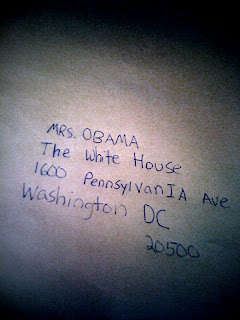 MRS. OBAMA
The White House
1600 PennsylvanIA Ave
Washington DC
20500